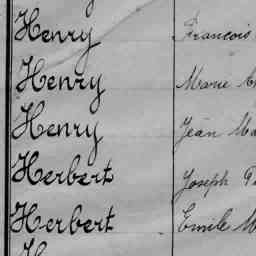 Henry Francois
Henry Marie
Henry Jean
Herbert Joseph
Herbert Emile